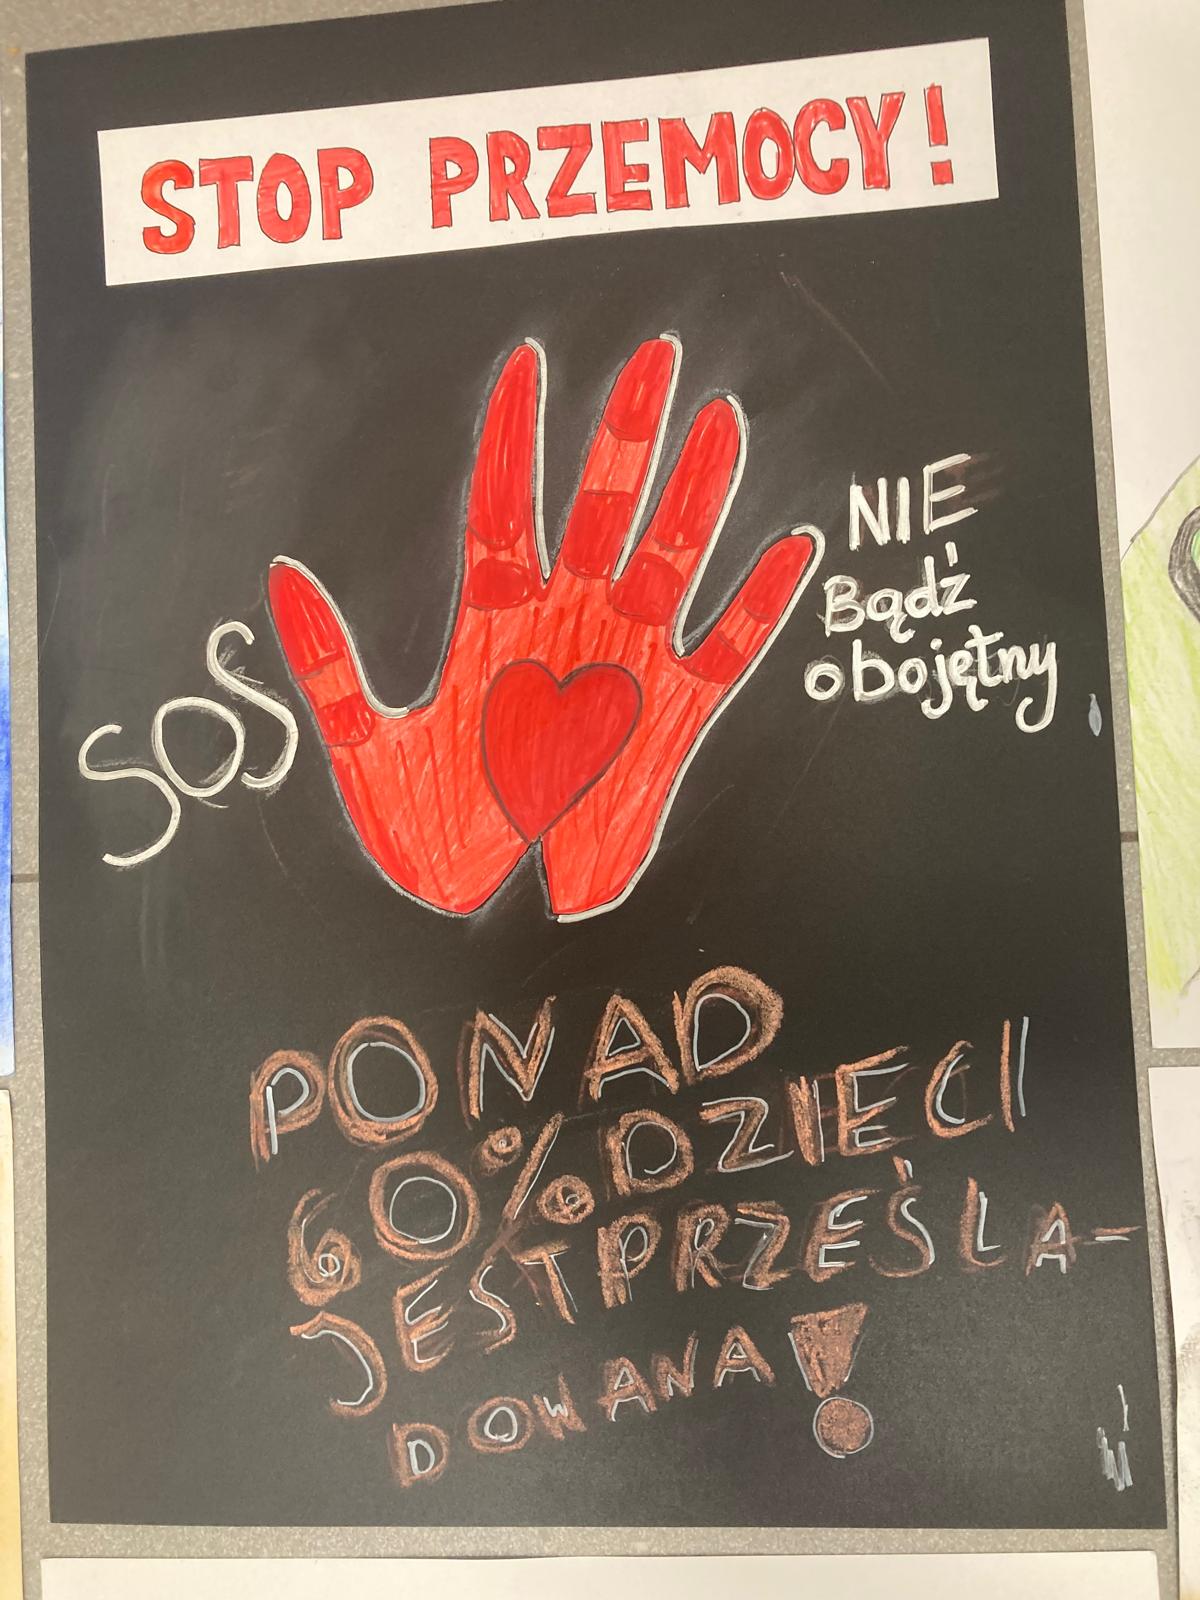 STOP PRZEMOCY!
SOS
NIE
Bądź
obojętny
PONAD
60% DZIECI
JEST PRZEŚLA-
DOWANA!